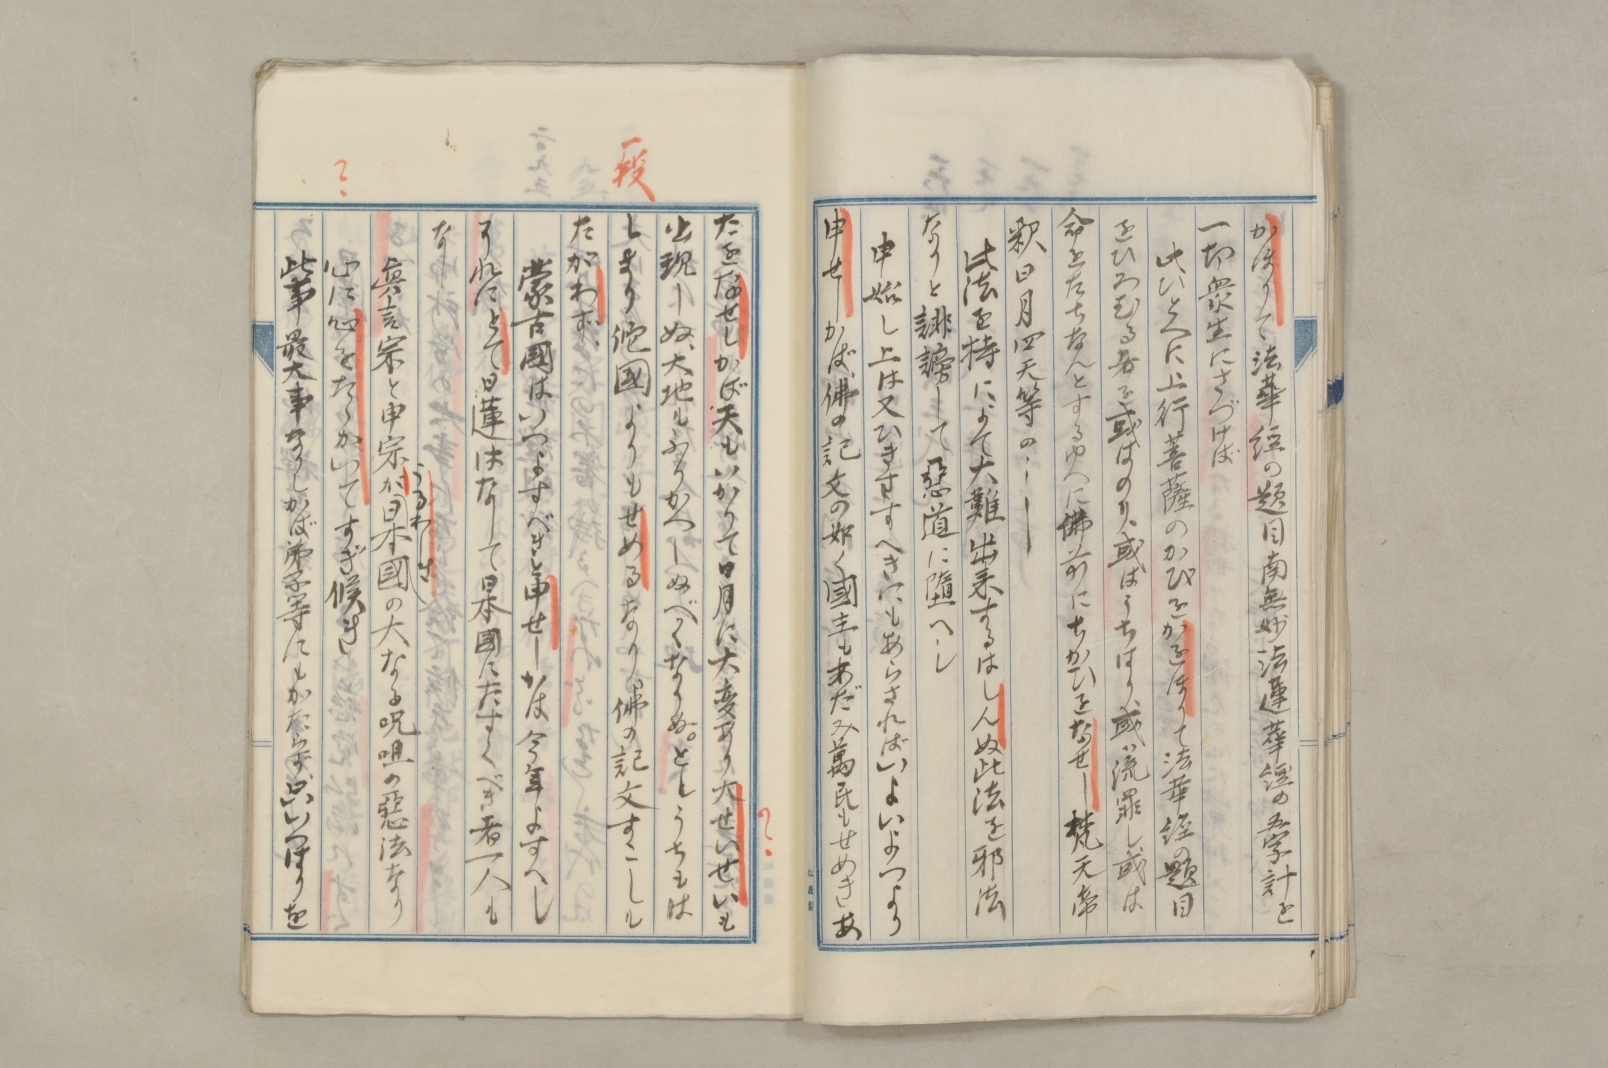 かほりて法華経の題目南無妙法蓮華経の五字計を
一切衆生にさづけば
此ひとへに上行菩薩のかびをかをほりて法華経の題目
をひろむる者を或はのり、或はうちはり、或は流罪し或は
命をたちなんとするゆへに佛前にちかひをなせし梵天帝
釈日月四天等の…
此法を持によて大難出来するはしんぬ此法を邪法
なりと誹謗して惡道に墮へし
申始し上は又ひきすすへきにもあらされば、いよいよつより
申せしかば、佛の記文の如く國主もあだみ萬民もせめき、あ
一段
たをなせしかば天もいかりて日月に大変あり大せいせいも
出現しぬ、大地もふりかへしぬべくなりぬ。どしうちもは
しまり他國よりもせめるなり、佛の記文すこしも
たがわず、
蒙古國はいつよすべきと申せしかは今年よすへし
それにとて日蓮はなして日本國にたすくべき者一人も
なし
眞言宗と申宗がうるわしき日本國の大なる呪咀の惡法なり
心に心をたゝかいてすぎ候き
此事最大事なりしかば弟子等にもかたらず只いつはりを